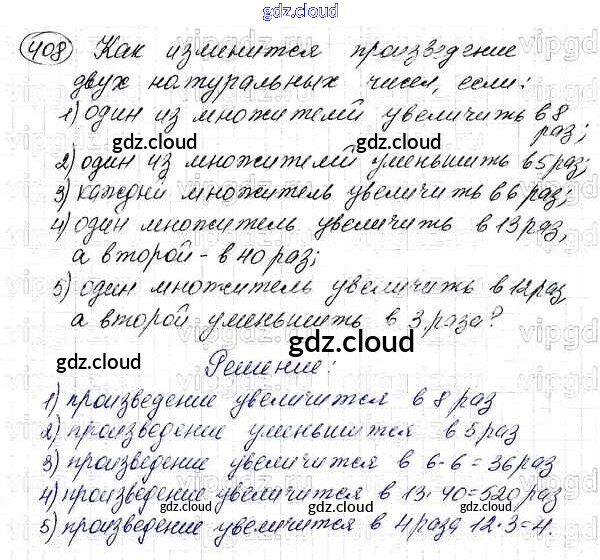 gdz.cloud
408 Как изменится произведение
двух натуральных чисел, если:
1) один из множителей увеличить в 8
раз;
gdz.cloud gdz.cloud
2) один из множителей уменьшить в 5 раз;
3) каждый множитель увеличить в 6 раз;
4) один множитель увеличить в 13 раз,
а второй - в 40 раз;
gdz.cloud gdz.cloud
5) один множитель увеличить в 12 раз
а второй уменьшить в 3 раза?
gdz.cloud gdz.cloud
Решение:
1) произведение увеличится в 8 раз
2) произведение уменьшится в 5 раз
gdz.cloud gdz.cloud
3) произведение увеличится в 6·6=36 раз
4) произведение увеличится в 13·40=520 раз
gdz.cloud gdz.cloud
5) произведение увеличится в 4 раза 12:3=4.
gdz.cloud
vipgdz